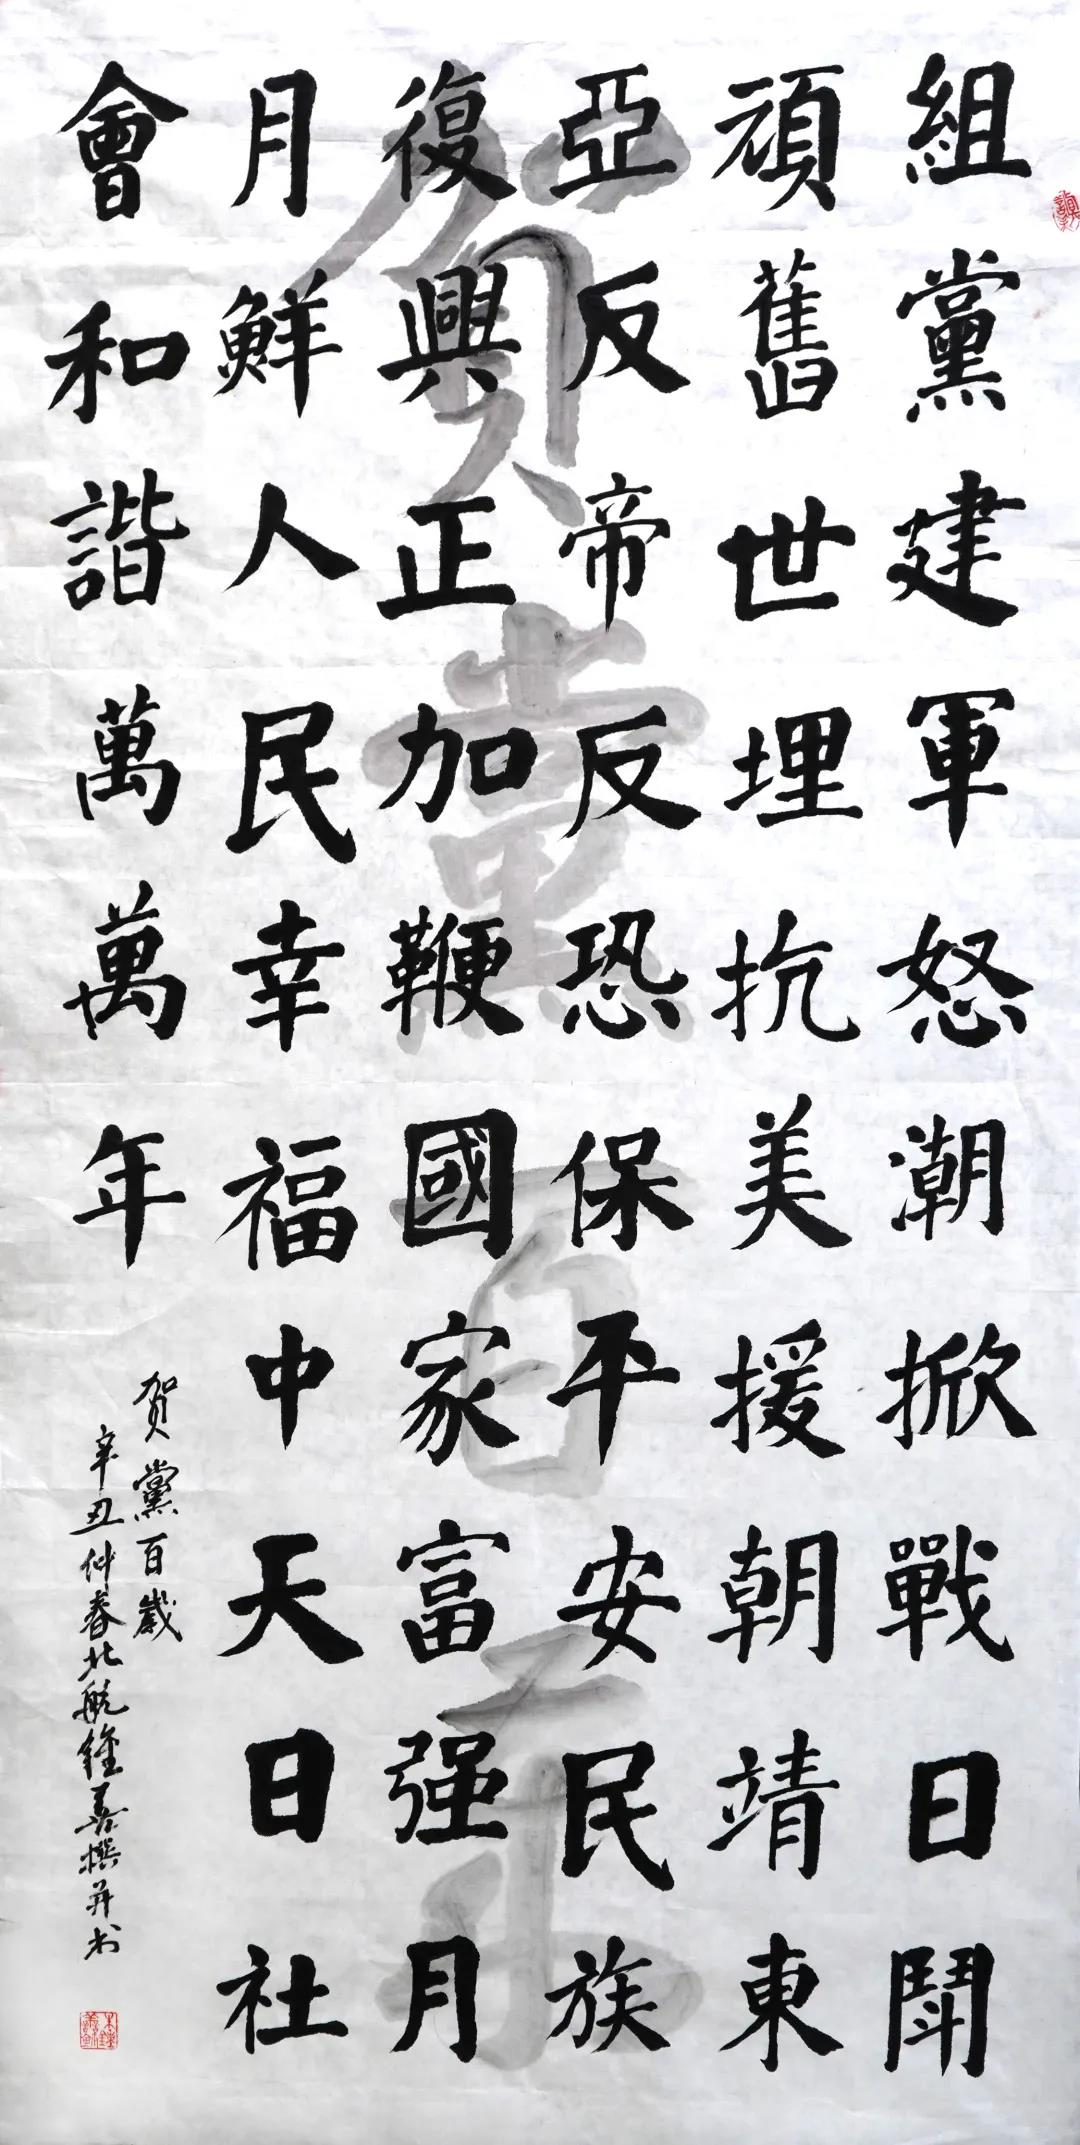 組黨建軍怒潮掀戰日鬪
頑舊世埋抗美援朝靖東
亞反帝反恐保平安民族
復興正加鞭國家富强月
月鮮人民幸福中天日社
會和諧萬萬年
贺黨百歲
辛丑仲春北航鍾善撰并书
賀黨百年